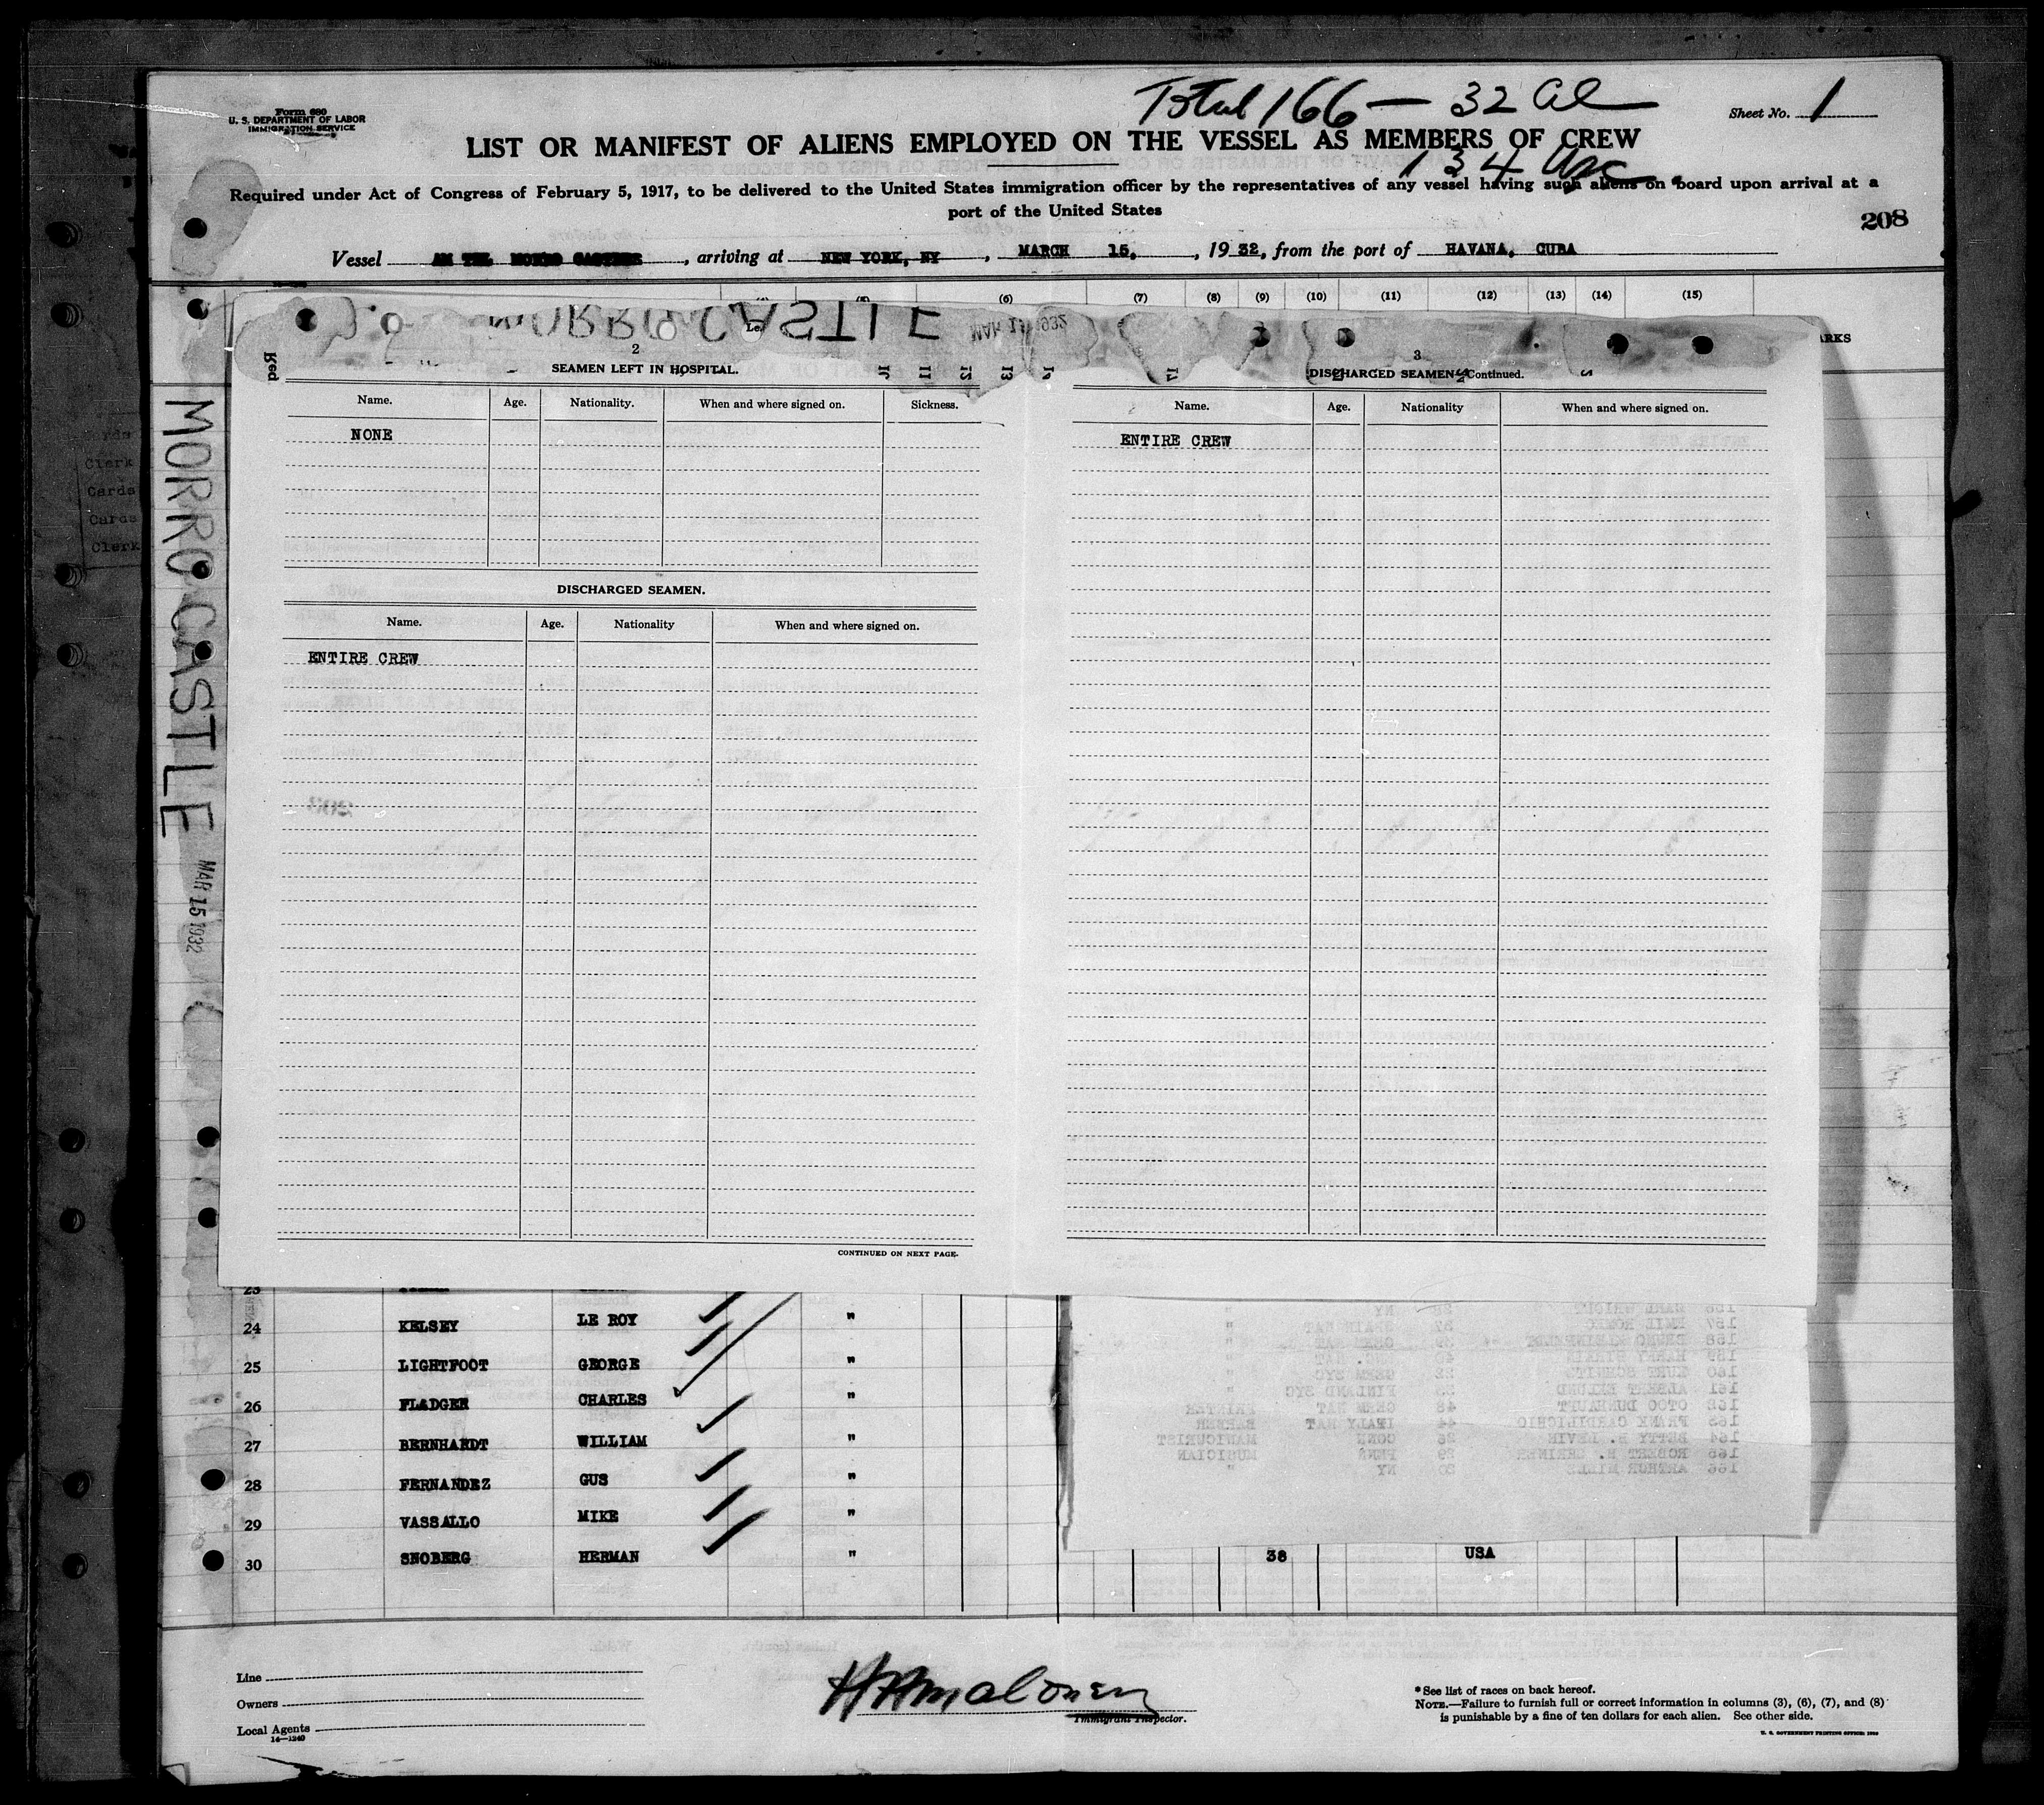 Total 166 — 32 al
Form 680
U. S. DEPARTMENT OF LABOR
IMMIGRATION SERVICE
Sheet No. 1
LIST OR MANIFEST OF ALIENS EMPLOYED ON THE VESSEL AS MEMBERS OF CREW
134 Usc
Required under Act of Congress of February 5, 1917, to be delivered to the United States immigration officer by the representatives of any vessel having such aliens on board upon arrival at a
port of the United States
208
Vessel AM TEL MORRO CASTLE, arriving at NEW YORK, NY, MARCH 15, 1932, from the port of HAVANA, CUBA
(6) (7) (8) (9) (10) (11) (12) (13) (14) (15)
MORRO CASTLE MAR 15 1932
MORRO CASTLE
MAR 15 1932
2
SEAMEN LEFT IN HOSPITAL.
Name. Age. Nationality. When and where signed on. Sickness.
NONE
DISCHARGED SEAMEN.
Name. Age. Nationality When and where signed on.
ENTIRE CREW
CONTINUED ON NEXT PAGE.
3
DISCHARGED SEAMEN—Continued.
Name. Age. Nationality When and where signed on.
ENTIRE CREW
Cards
Clerk
Cards
Cards
Clerk
23
24 KELSEY LE ROY "
25 LIGHTFOOT GEORGE "
26 FLADGER CHARLES "
27 BERNHARDT WILLIAM "
28 FERNANDEZ GUS "
29 VASSALLO MIKE "
30 SNOBERG HERMAN " 38 USA
159 HARRY
160 KURT SCHMITZ
161 ALBERT EKLUND FINLAND SYC "
162 OTOO 48 GERM NAT PRINTER
163 FRANK CARDILICHIO 44 ITALY NAT BARBER
164 BETTY B. LEVIN 26 CONN MANICURIST
165 ROBERT H. 29 PENN MUSICIAN
166 ARTHUR 30 NY "
Line
Owners
Local Agents
14—1240
Immigrant Inspector.
* See list of races on back hereof.
NOTE.—Failure to furnish full or correct information in columns (3), (6), (7), and (8)
is punishable by a fine of ten dollars for each alien. See other side.
U. S. GOVERNMENT PRINTING OFFICE: 1930